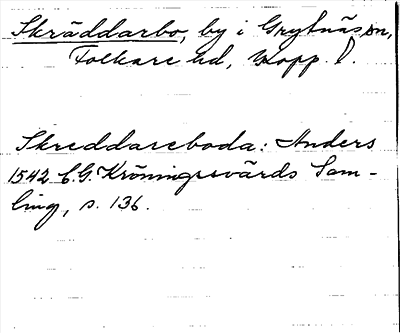 Skräddarbo, by i Grytnäs sn,
Folkare hd, Kopp. l.
Skreddareboda: Anders
1542 C.G. Kröningsvärds Sam-
ling, s. 136.